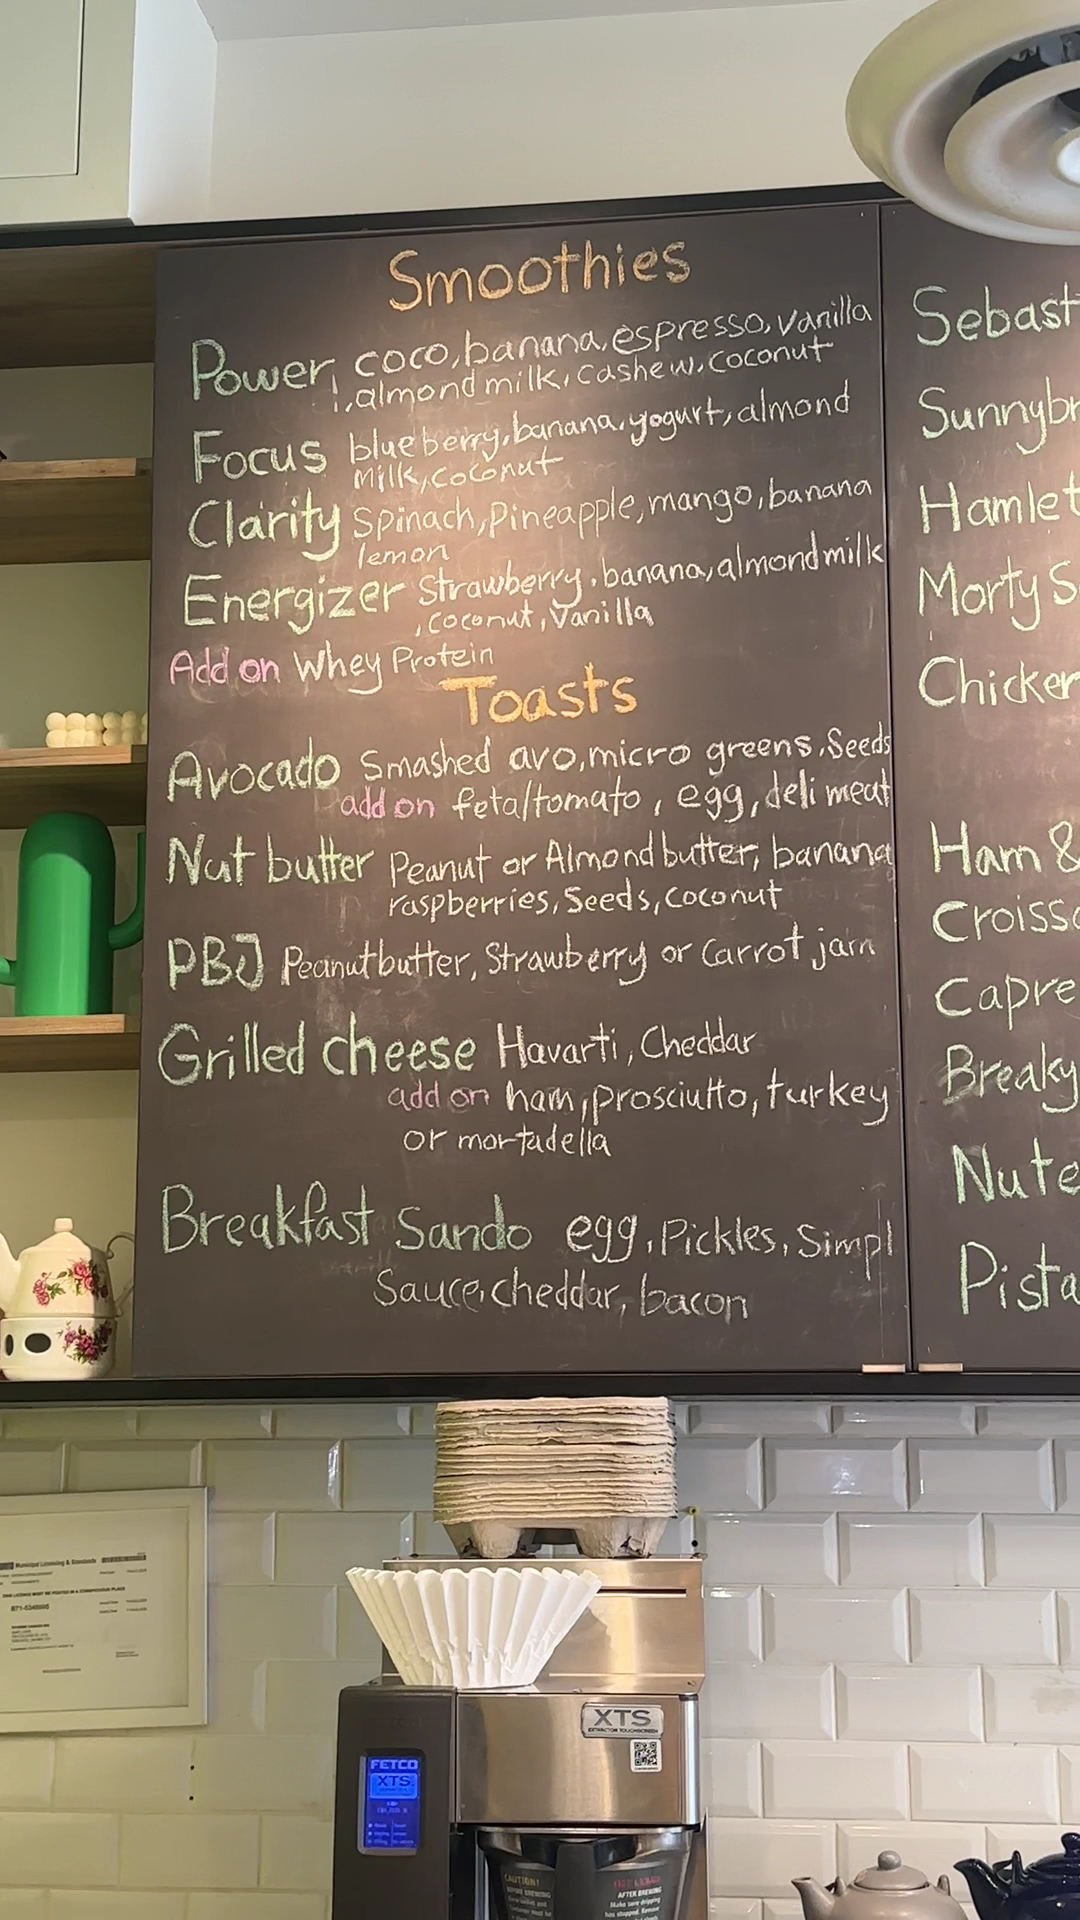 Smoothies
Power, coco, banana, espresso, vanilla
, almond milk, cashew, coconut
Focus blueberry, banana, yogurt, almond
Milk, coconut
Clarity Spinach, Pineapple, mango, banana
lemon
Energizer Strawberry, banana, almond milk
, coconut, Vanilla
Add on Whey Protein
Toasts
Avocado Smashed avo, micro greens, Seeds
add on feta/tomato, egg, deli meat
Nut butter Peanut or Almond butter, banana
raspberries, Seeds, coconut
PBJ Peanut butter, Strawberry or Carrot jam
Grilled cheese Havarti, Cheddar
add on ham, prosciutto, turkey
or mortadella
Breakfast Sando egg, Pickles, Simpl
Sauce, cheddar, bacon
Sebast
Sunnybr
Hamlet
Morty S
Chicken
Ham &
Croissa
Capre
Breaky
Nute
Pista
Municipal Licensing & Standards
XTS
EXTRACTOR TOUCHSCREEN
FETCO
XTS
CAUTION!
BEFORE BREWING
AFTER BREWING
Make sure dripping
has stopped. Remove